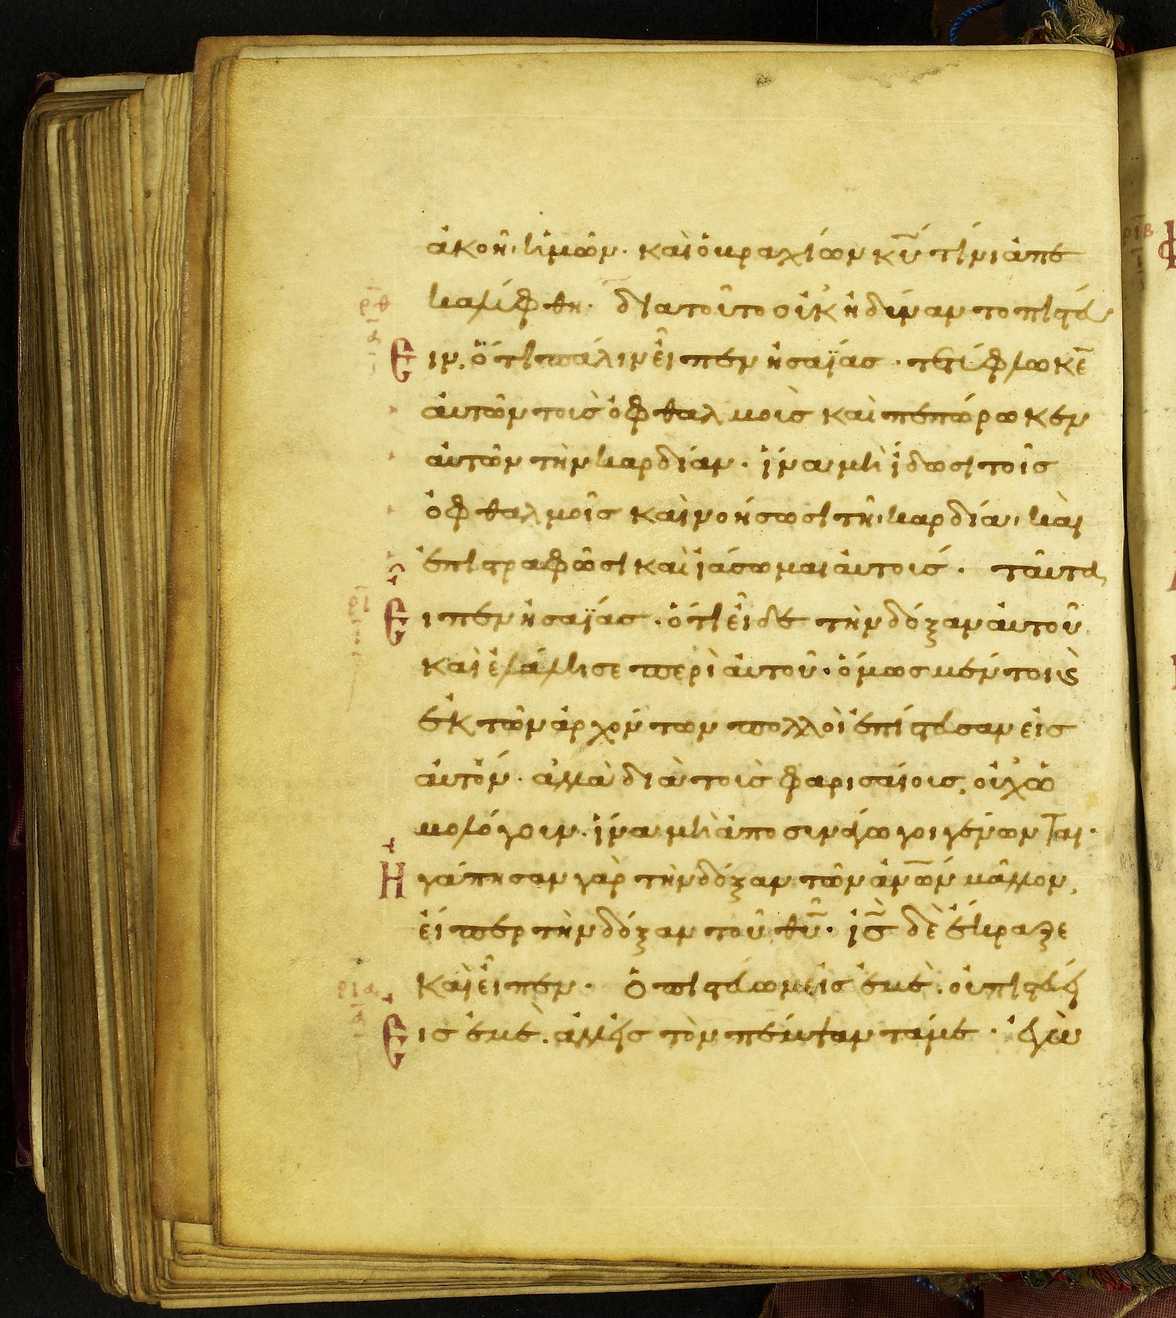 ἀκοῆ ἡμῶν· καὶ ὁ βραχίων κῡ τίνι ἀπε
καλύφθη· διατοῦτο οὐκ ἠδύναντο πιστεύ
ειν, ὅτι πάλιν εἶπεν ἡσαΐας· τετύφλωκεν
αὐτῶν τοὺς ὀφθαλμοὺς καὶ πεπώρωκεν
αὐτῶν τὴν καρδίαν· ἵνα μὴ ἴδωσι τοῖς
ὀφθαλμοῖς καὶ νοήσωσι τῆ καρδία, καὶ
ἐπιστραφῶσι καὶ ἰάσωμαι αὐτούς· ταῦτα
εἶπεν ἡσαΐας· ὅτι εἶδε τὴν δόξαν αὐτοῦ
καὶ ἐλάλησε περὶ αὐτοῦ· ὅμως μέντοι καὶ
ἐκ τῶν ἀρχόντων πολλοὶ ἐπίστευσαν εἰς
αὐτόν· ἀλλὰ διὰ τοὺς φαρισαίους, οὐχ ὡ
μολόγουν· ἵνα μὴ ἀποσυνάγωγοι γένωνται·
Ηγάπησαν γὰρ τὴν δόξαν τῶν ἀνῶν μᾶλλον,
εἴπερ τὴν δόξαν τοῦ θῡ· ις δὲ ἔκραξε
καὶ εἶπεν· Ὁ πιστεύων εἰς ἐμὲ, οὐ πιστεύει
εἰς ἐμὲ, ἀλλ' εἰς τὸν πέμψαντά με· ἐγὼ
ρθ
ρι
ρια
ριβ